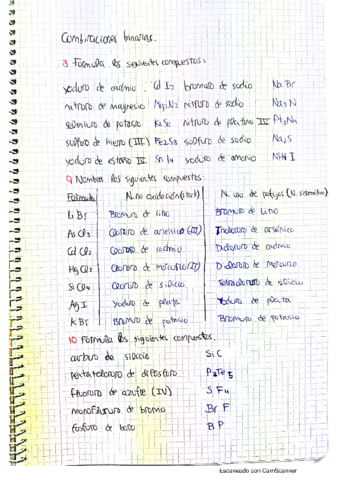 Combinaciones binarias.
3 Formula los siguientes compuestos:
yoduro de cadmio. CdI2 bromuro de sodio NaBr
nitruro de magnesio Mg3N2 nitruro de sodio Na3N
seleniuro de potasio K2Se nitruro de platino IV Pt3N4
sulfuro de hierro (III) Fe2S3 sulfuro de sodio Na2S
yoduro de estaño IV SnI4 yoduro de amonio NH4I
9 Nombra los siguientes compuestos
Formula N. no oxidación (stock) N. uso de prefijos (N. sistemática)
LiBr Bromuro de litio Bromuro de Litio
AsCl3 Cloruro de arsénico (III) Tricloruro de arsénico
CdCl2 Cloruro de cadmio Dicloruro de cadmio
HgCl2 Cloruro de mercurio (II) Dicloruro de Mercurio
SiCl4 Cloruro de silicio Tetracloruro de silicio
AgI Yoduro de plata Yoduro de plata
KBr Bromuro de potasio Bromuro de potasio
10 Formula los siguientes compuestos.
carburo de silicio SiC
pentatelururo de difósforo P2Te5
fluoruro de azufre (IV) SF4
monofluoruro de bromo BrF
fosfuro de boro BP
Escaneado con CamScanner